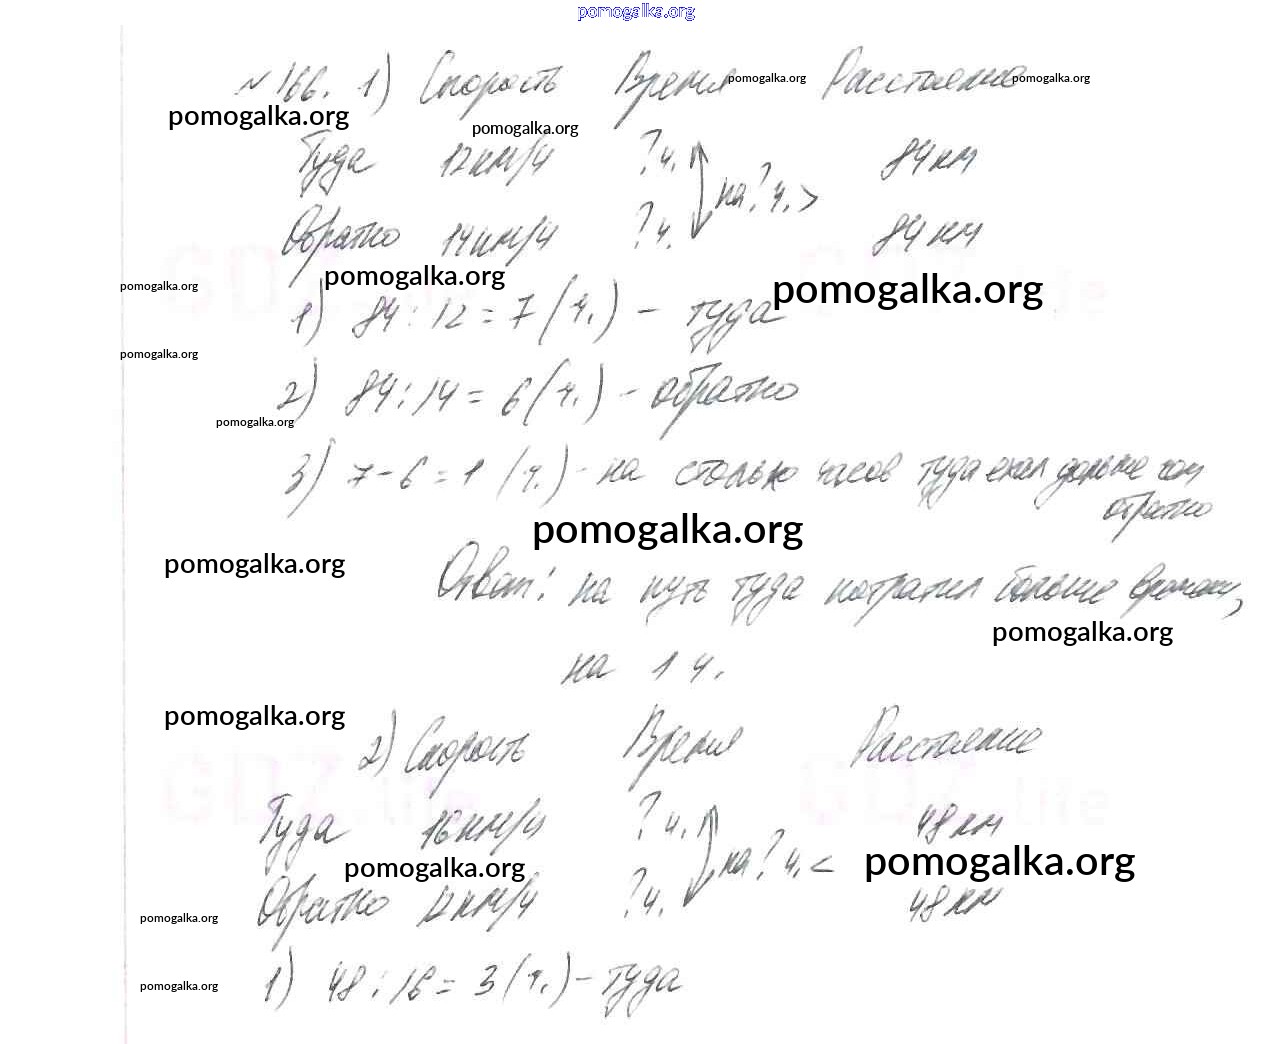 pomogalka.org
№166. 1) Скорость Время pomogalka.org Расстояние pomogalka.org
pomogalka.org
pomogalka.org
Туда 12км/ч ?ч. на ? ч. > 84 км
Обратно 14км/ч ?ч. 84 км
pomogalka.org pomogalka.org pomogalka.org
1) 84 : 12 = 7 (ч.) - туда
pomogalka.org
2) 84 : 14 = 6 (ч.) - обратно
pomogalka.org
3) 7 - 6 = 1 (ч.) - на столько часов туда ехал дольше чем
обратно
pomogalka.org
pomogalka.org
Ответ: на путь туда потратил больше времени,
pomogalka.org
на 1 ч.
pomogalka.org
2) Скорость Время Расстояние
GDZ.life GDZ.life
Туда 16км/ч ?ч. на ? ч. < 48 км
pomogalka.org pomogalka.org
Обратно 12км/ч ?ч. 48 км
pomogalka.org
1) 48 : 16 = 3 (ч.) - туда
pomogalka.org